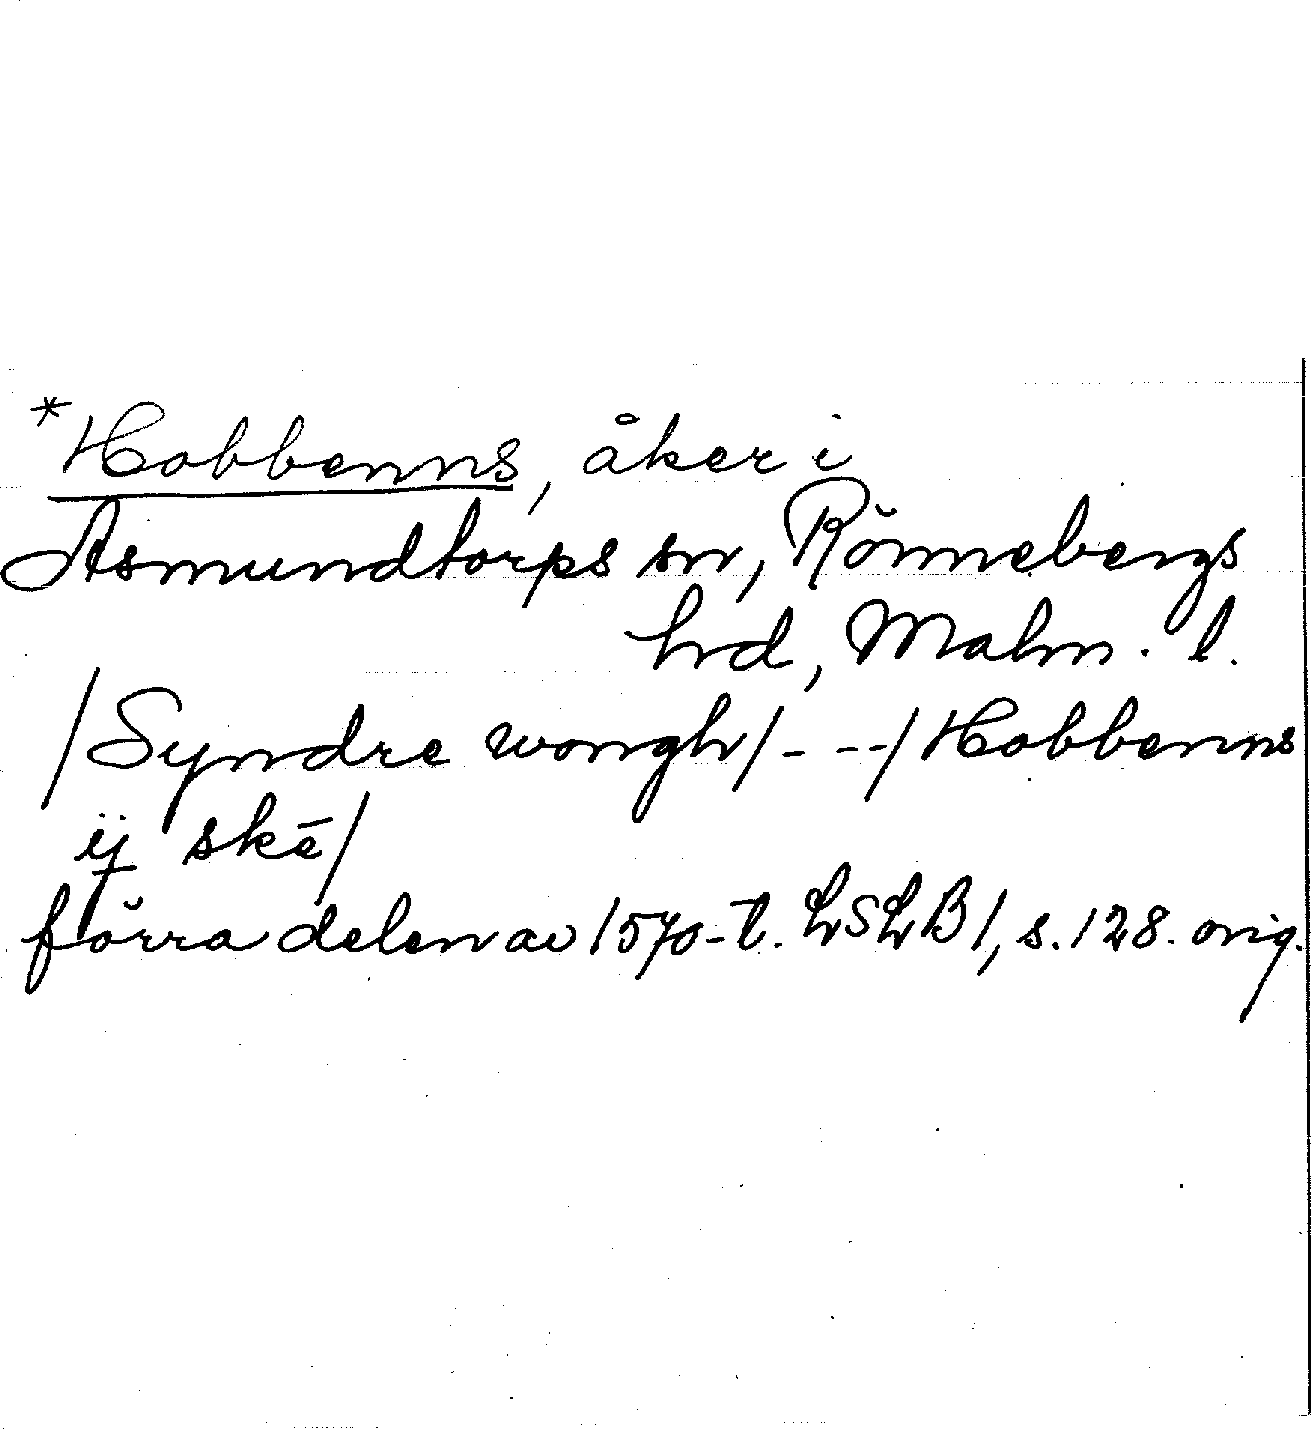 *Hobbenns, åker i
Asmundtorps sn, Rönnebergs
hrd, Malm. l.
/Syndre wongh/- --/Hobbenns
ij skē/
förra delen av 1570-t. LSLB 1, s. 128. orig.